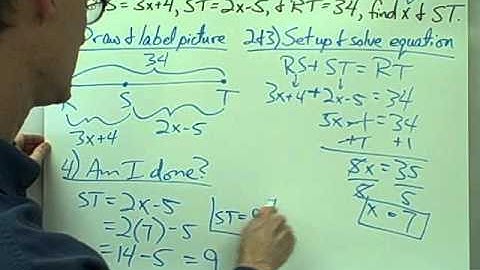 RS = 3x+4, ST = 2x-5, & RT = 34, find x & ST.
Draw & label picture
34
R S T
3x+4 2x-5
2&3) Set up & solve equation
RS + ST = RT
3x+4 + 2x-5 = 34
5x-1 = 34
+1 +1
5x = 35
5 5
x = 7
4) Am I done?
ST = 2x-5
= 2(7)-5
= 14-5 = 9
ST = 9